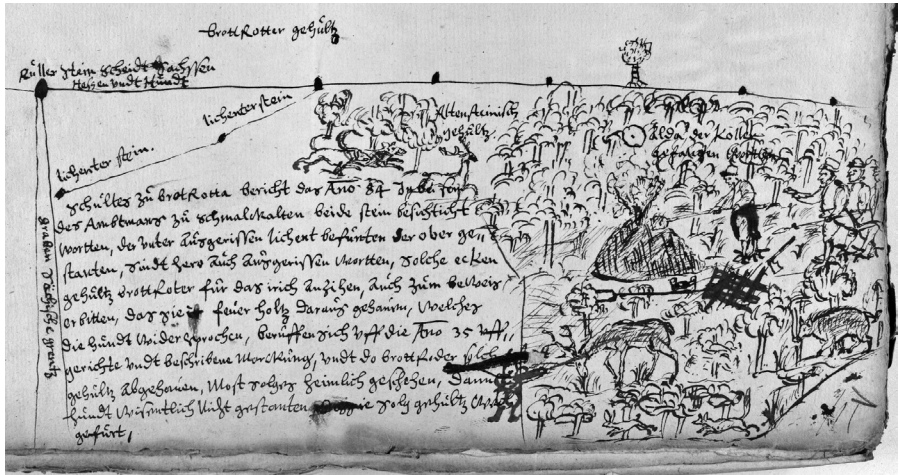 brottRotter gehültz
Küller Stein scheidt Sachssen
Hessen vndt Hündt
lichenter stein
lichenter stein.
Altensteinisch
gehültz
alda der Köller
Schültes zü brottRotta bericht das Ano 84 In bei sein
des Ambtmans zü Schmalkalten beide stein besichticht
wortten, der vnter aüsgerissen lichent befünten der ober ge„
stanten, sindt hero aüch aüsgerissen wortten, solche ecken
gehültz brottRoter für das irich anzihen, aüch züm beweis
erbitten, das sie feüer holtz daraüs gehaüen, welches
die hündt wider sprochen, berüffen sich vff die Ano 35 vff„
gerichte vndt beschribene Marcküng, vndt do brottRoder solch
gehültz abgehaüen, Most solges heimlich geschehen, dann
hündt wissentlich nicht gestanten solg gehültz
gefürt,